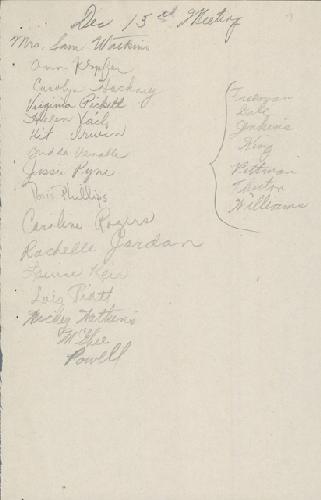 Dec 15th Meeting
Mrs. Sam Watkins
Ann Klipfer
Carolyn Hockney
Virginia Pickett
Helen Vail
Kit Irwin
Venable
Jessie Pyne
Doris Phillips
Caroline Rogers
Rachelle Jordan
Louise Keir
Lois Piatt
Watkins
McGhee
Powell
Freeman
Dale
Jenkins
King
Pittman
Theriton
Williams